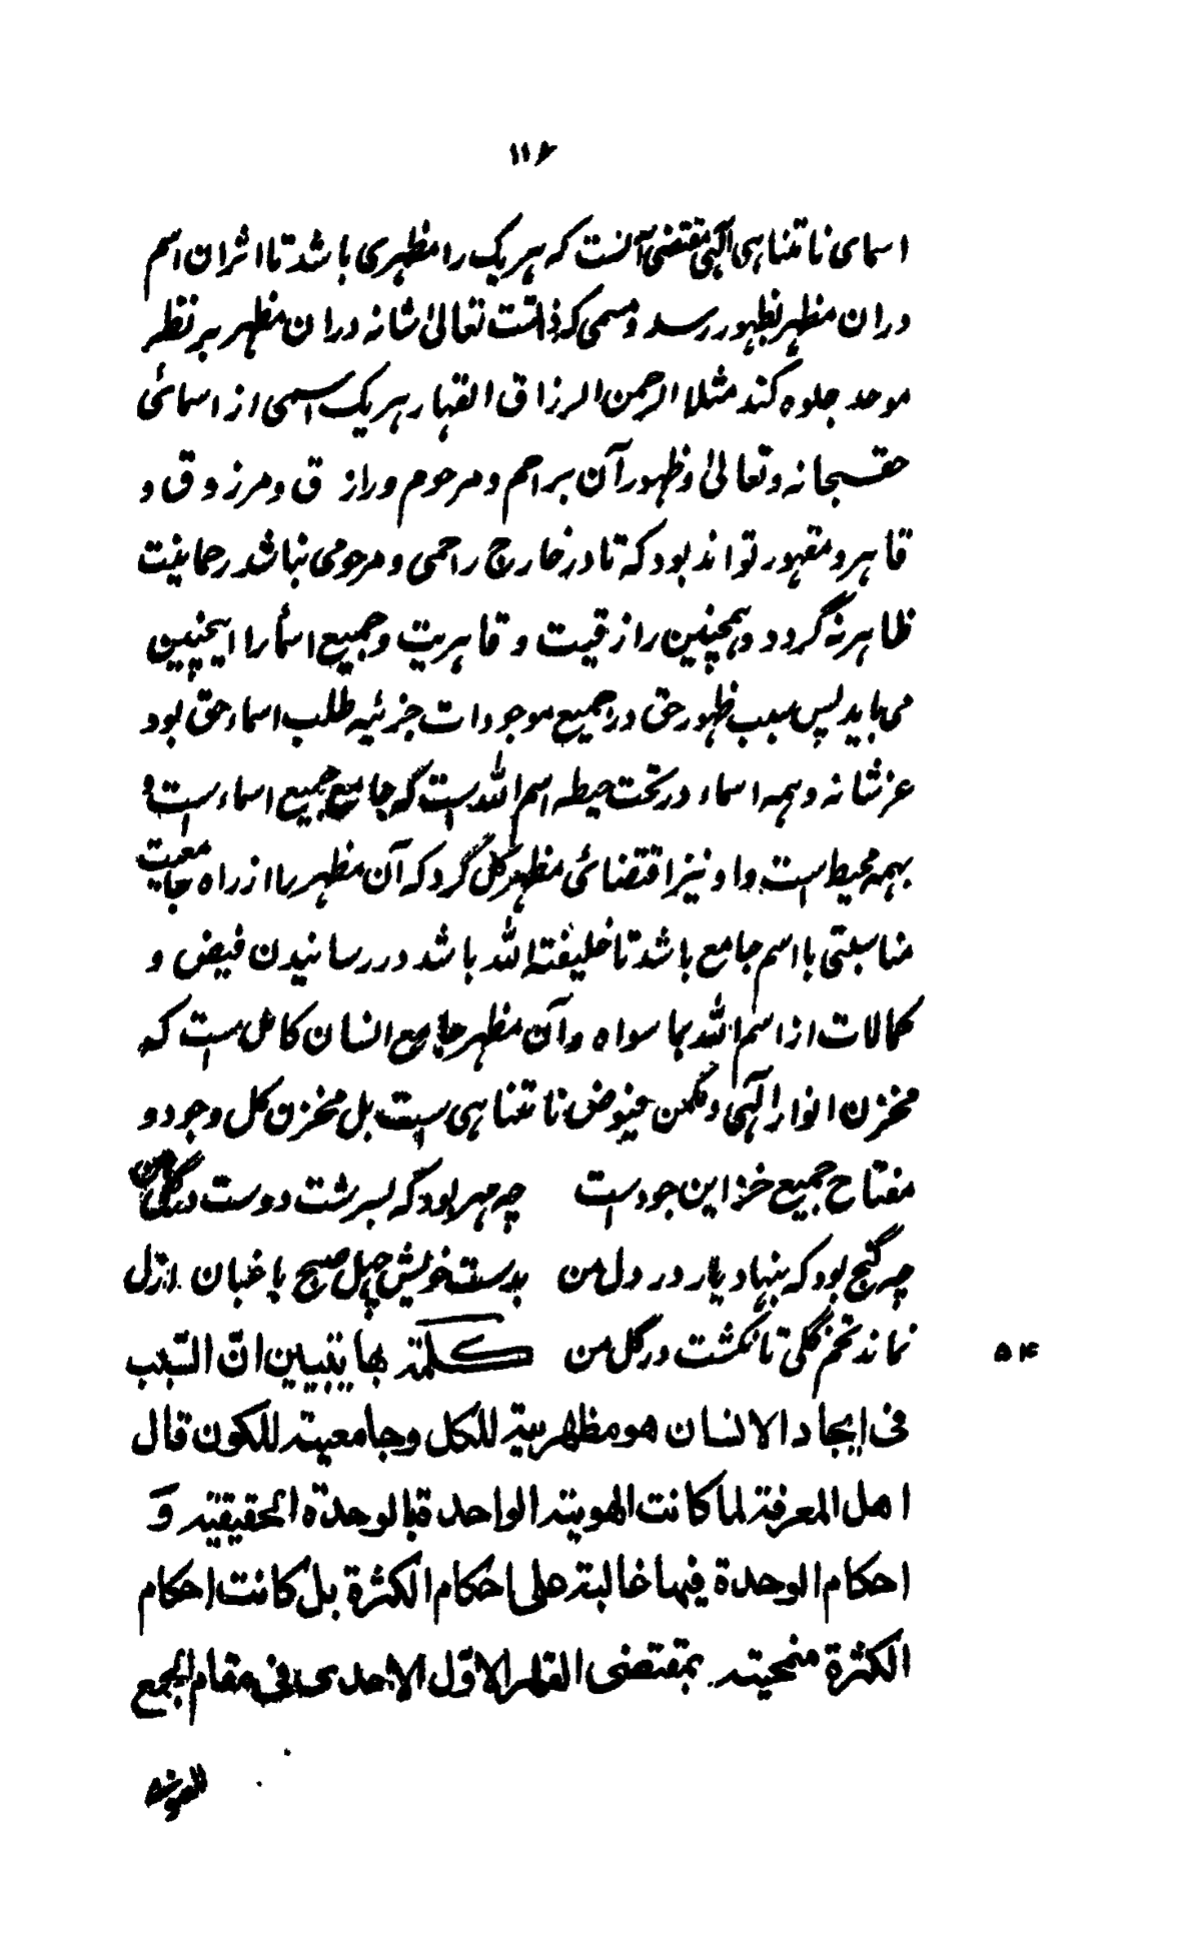 ۱۱۶
اسمای ناتناهی الٰهی مقتضی آنست که هر یک را مظهری باشد تا اثر ان اسم
دران مظهر بظهور رسد و مسمی که ذاتست تعالیٰ شانه دران مظهر بر نظر
موحد جلوه کند مثلا الرحمن الرزاق القهار هر یک اسمی از اسمائی
حق سبحانه و تعالیٰ و ظهور آن بر احم و مرحوم و رازق و مرزوق و
قاهر و مقهور تواند بود که تا در خارج راحمی و مرحومی نباشد رحمانیت
ظاهر نه گردد و همچنین رازقیت و قاهریت و جمیع اسمأ را اینچنین
می باید پس سبب ظهور حق در جمیع موجودات جزئیه طلب اسماء حق بود
عز شانه و همه اسماء در تحت حیطه اسم الله است که جامع جمیع اسماء ست و
بهمه محیط است و او نیز اقتضائی مظهر کل گرد که آن مظهر را از راه جامعیت
مناسبتی با اسم جامع باشد تا خلیفة الله باشد در رسانیدن فیض و
کمالات از اسم الله بما سواه و آن مظهر جامع انسان کامل ست که
مخزن انوار الٰهی و مکمن فیوض ناتناهی ست بل مخزن کل وجود و
مفتاح جمیع خزاین جود است چه مهر بود که بسرشت دوست در گل من
چه گنج بود که بنهاد یار در دل من بدست خویش چهل صبح باغبان ازل
نماند تخم گلی تا نکشت در گل من کلمة بها یتبین ان السبب
۵۴
فی ایجاد الانسان هو مظهریة للکل و جامعیة للکون قال
اهل المعرفة لما کانت الهویة الواحدة بالوحدة الحقیقیة و
احکام الوحدة فیها غالبة علی احکام الکثرة بل کانت احکام
الکثرة منمحیة بمقتضی القهر الاوّل الاحدی فی مقام الجمع